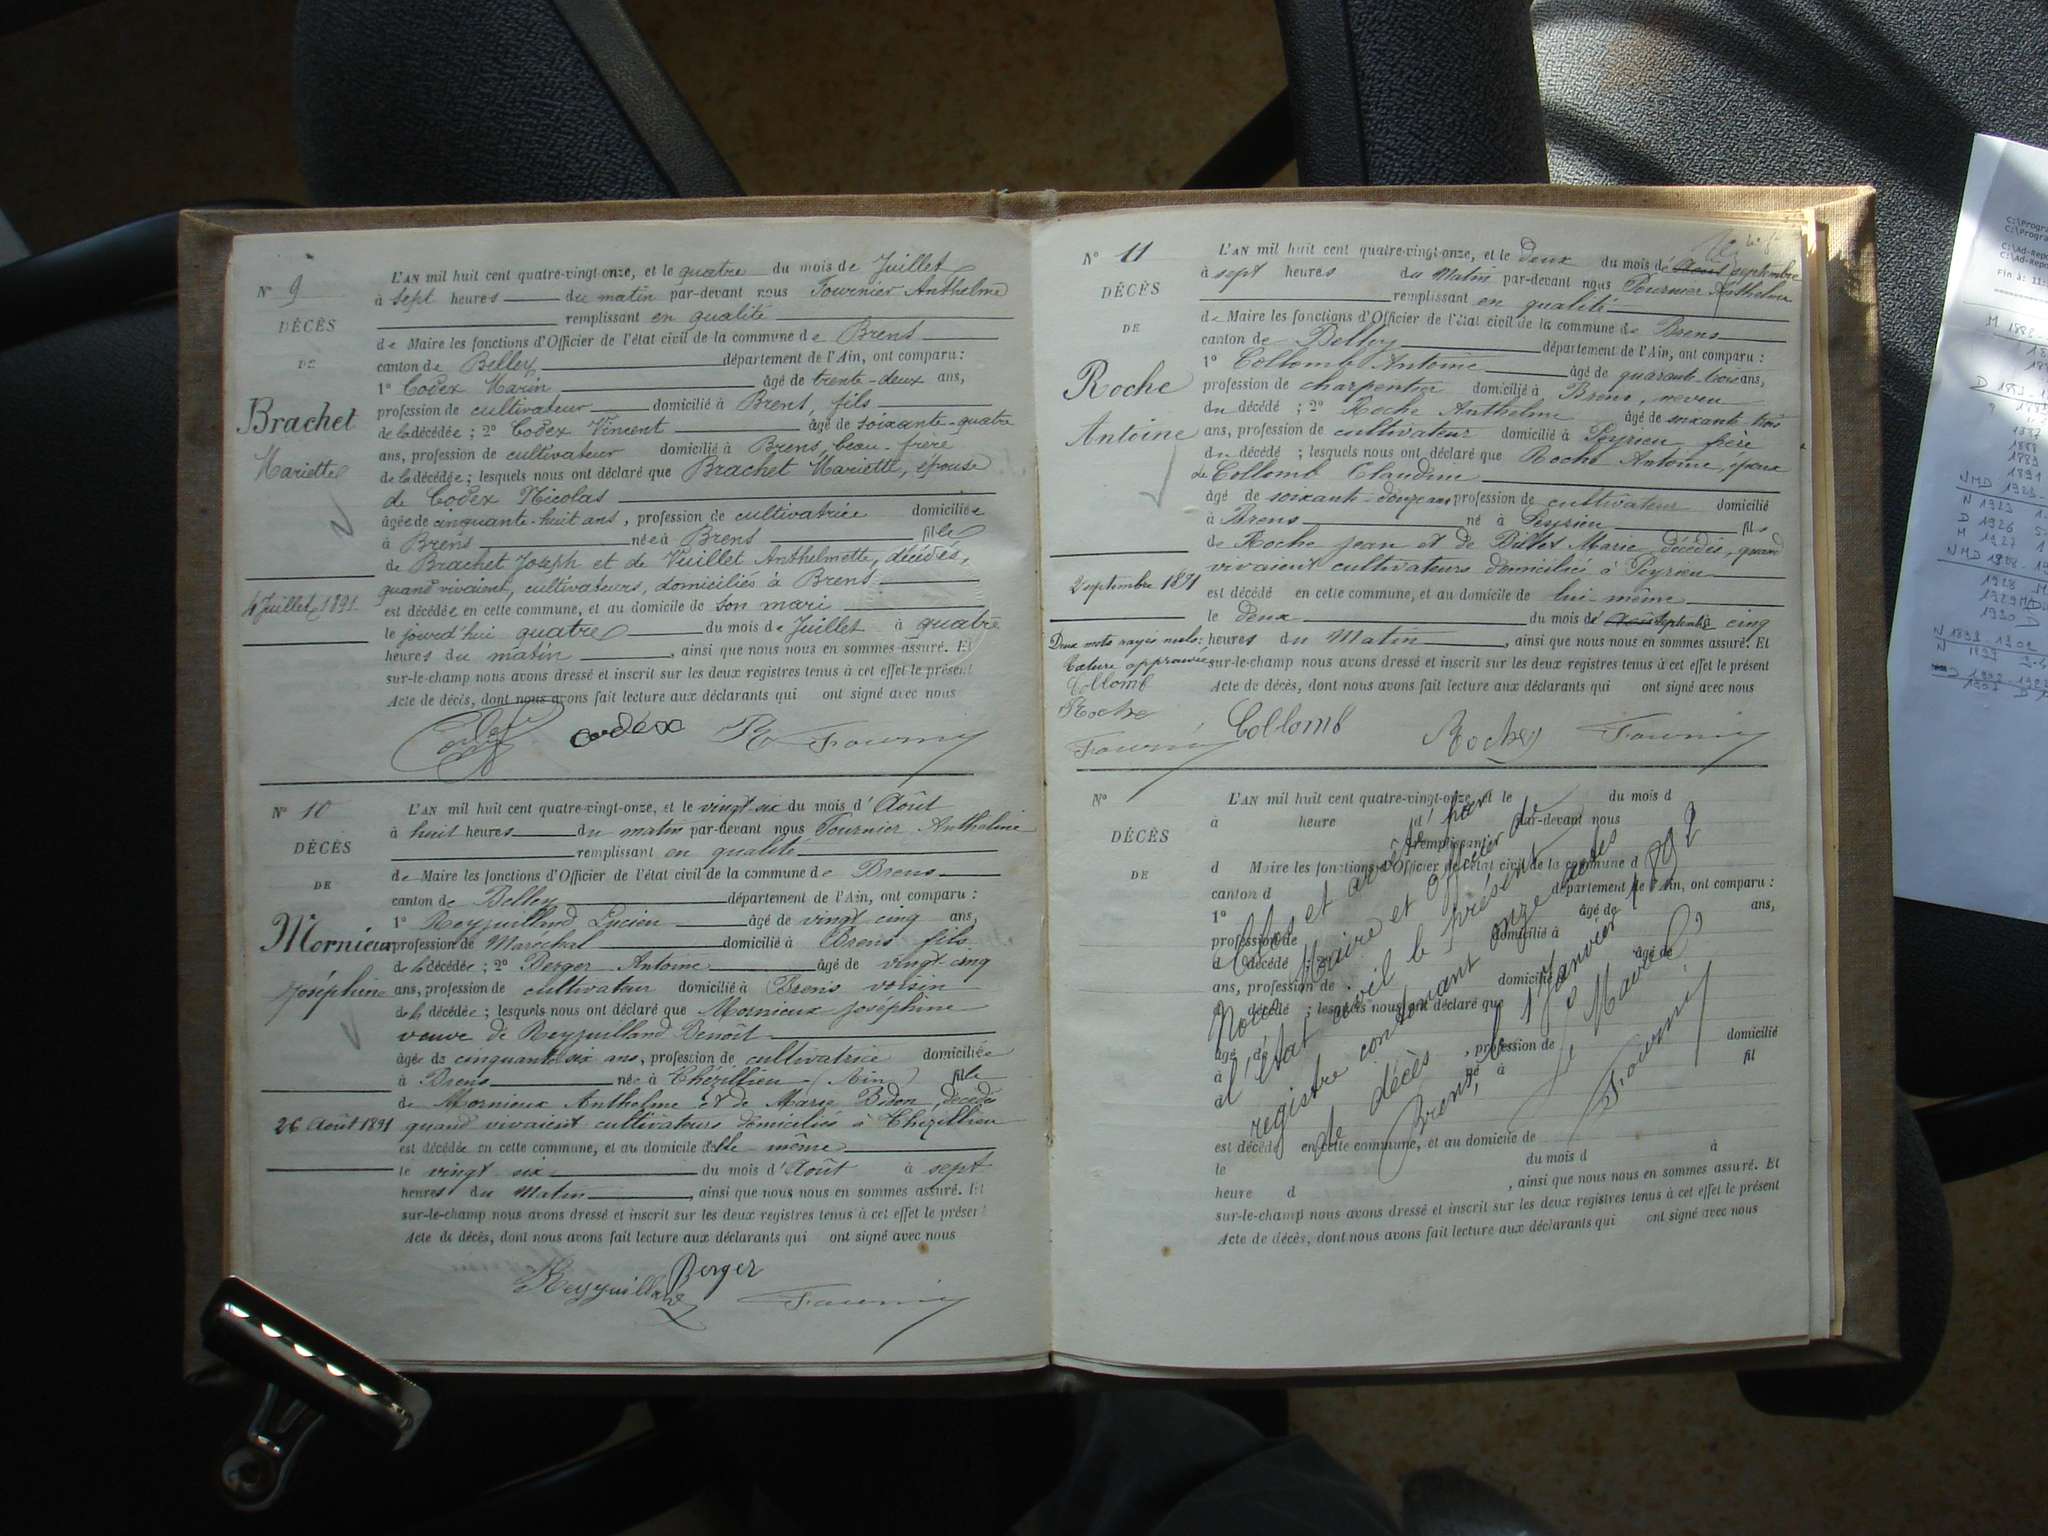 N° 9
DÉCÈS
DE
Brachet
Mariette
4 Juillet 1891
L'AN mil huit cent quatre-vingt-onze, et le quatre du mois de Juillet
à sept heures du matin par-devant nous Fournier Anthelme
remplissant en qualité
de Maire les fonctions d'Officier de l'état civil de la commune de Brens
canton de Belley département de l'Ain, ont comparu :
1° Codex Marin âgé de trente-deux ans,
profession de cultivateur domicilié à Brens, fils
de la décédée ; 2° Codex Vincent âgé de soixante-quatre
ans, profession de cultivateur domicilié à Brens, beau-frère
de la décédée ; lesquels nous ont déclaré que Brachet Mariette, épouse
de Codex Nicolas
âgée de cinquante-huit ans, profession de cultivatrice domiciliée
à Brens née à Brens fille
de Brachet Joseph et de Vuillet Anthelmette, décédés,
quand vivaient, cultivateurs, domiciliés à Brens
est décédée en cette commune, et au domicile de son mari
le jourd'hui quatre du mois de Juillet à quatre
heures du matin, ainsi que nous nous en sommes assuré. Et
sur-le-champ nous avons dressé et inscrit sur les deux registres tenus à cet effet le présent
Acte de décès, dont nous avons fait lecture aux déclarants qui ont signé avec nous
Codex codex Fournier
N° 10
DÉCÈS
DE
Mornieux
Joséphine
26 Août 1891
L'AN mil huit cent quatre-vingt-onze, et le vingt-six du mois d'Août
à huit heures du matin par-devant nous Fournier Anthelme
remplissant en qualité
de Maire les fonctions d'Officier de l'état civil de la commune de Brens
canton de Belley département de l'Ain, ont comparu :
1° Reyguilland Lucien âgé de vingt cinq ans,
profession de Maréchal domicilié à Brens fils
de la décédée ; 2° Berger Antoine âgé de vingt-cinq
ans, profession de cultivateur domicilié à Brens voisin
de la décédée ; lesquels nous ont déclaré que Mornieux Joséphine
veuve de Reyguilland Benoît
âgée de cinquante six ans, profession de cultivatrice domiciliée
à Brens née à Chézillieu (Ain) fille
de Mornieux Anthelme et de Marie Bidon, décédés
quand vivaient cultivateurs domiciliés à Chézillieu
est décédée en cette commune, et au domicile d'elle-même
le vingt six du mois d'Août à sept
heures du Matin, ainsi que nous nous en sommes assuré. Et
sur-le-champ nous avons dressé et inscrit sur les deux registres tenus à cet effet le présent
Acte de décès, dont nous avons fait lecture aux déclarants qui ont signé avec nous
Reyguilland Berger Fournier
N° 11
DÉCÈS
DE
Roche
Antoine
2 septembre 1891
Deux mots rayés nuls :
Lecture approuvée
Collomb
Roche
Fournier
L'AN mil huit cent quatre-vingt-onze, et le deux du mois d'août septembre
à sept heures du Matin par-devant nous Fournier Anthelme
remplissant en qualité
de Maire les fonctions d'Officier de l'état civil de la commune de Brens
canton de Belley département de l'Ain, ont comparu :
1° Collomb Antoine âgé de quarante-trois ans,
profession de charpentier domicilié à Brens, neveu
du décédé ; 2° Roche Anthelme âgé de soixante trois
ans, profession de cultivateur domicilié à Peyrieu frère
du décédé ; lesquels nous ont déclaré que Roche Antoine, époux
de Collomb Claudine
âgé de soixante-douze ans profession de cultivateur domicilié
à Brens né à Peyrieu fils
de Roche Jean et de Billet Marie décédés, quand
vivaient cultivateurs domiciliés à Peyrieu
est décédé en cette commune, et au domicile de lui-même
le deux du mois d'août septembre à cinq
heures du Matin, ainsi que nous nous en sommes assuré. Et
sur-le-champ nous avons dressé et inscrit sur les deux registres tenus à cet effet le présent
Acte de décès, dont nous avons fait lecture aux déclarants qui ont signé avec nous
Collomb Roche Fournier
N°
DÉCÈS
DE
L'AN mil huit cent quatre-vingt-onze, et le du mois d
à heure d par-devant nous
remplissant
d Maire les fonctions d'Officier de l'état civil de la commune d
canton d département de l'Ain, ont comparu :
1° âgé de ans,
profession de domicilié à
d décédé ; 2° âgé de
ans, profession de domicilié
d décédé ; lesquels nous ont déclaré que
âgé de , profession de domicilié
à né à fil
d
est décédé en cette commune, et au domicile de
le du mois d à
heure d , ainsi que nous nous en sommes assuré. Et
sur-le-champ nous avons dressé et inscrit sur les deux registres tenus à cet effet le présent
Acte de décès, dont nous avons fait lecture aux déclarants qui ont signé avec nous
Clos et arrêté par
Nous Maire et Officier de
l'état civil le présent
registre contenant onze actes
de décès
Brens, le 1er Janvier 1892
Le Maire,
Fournier